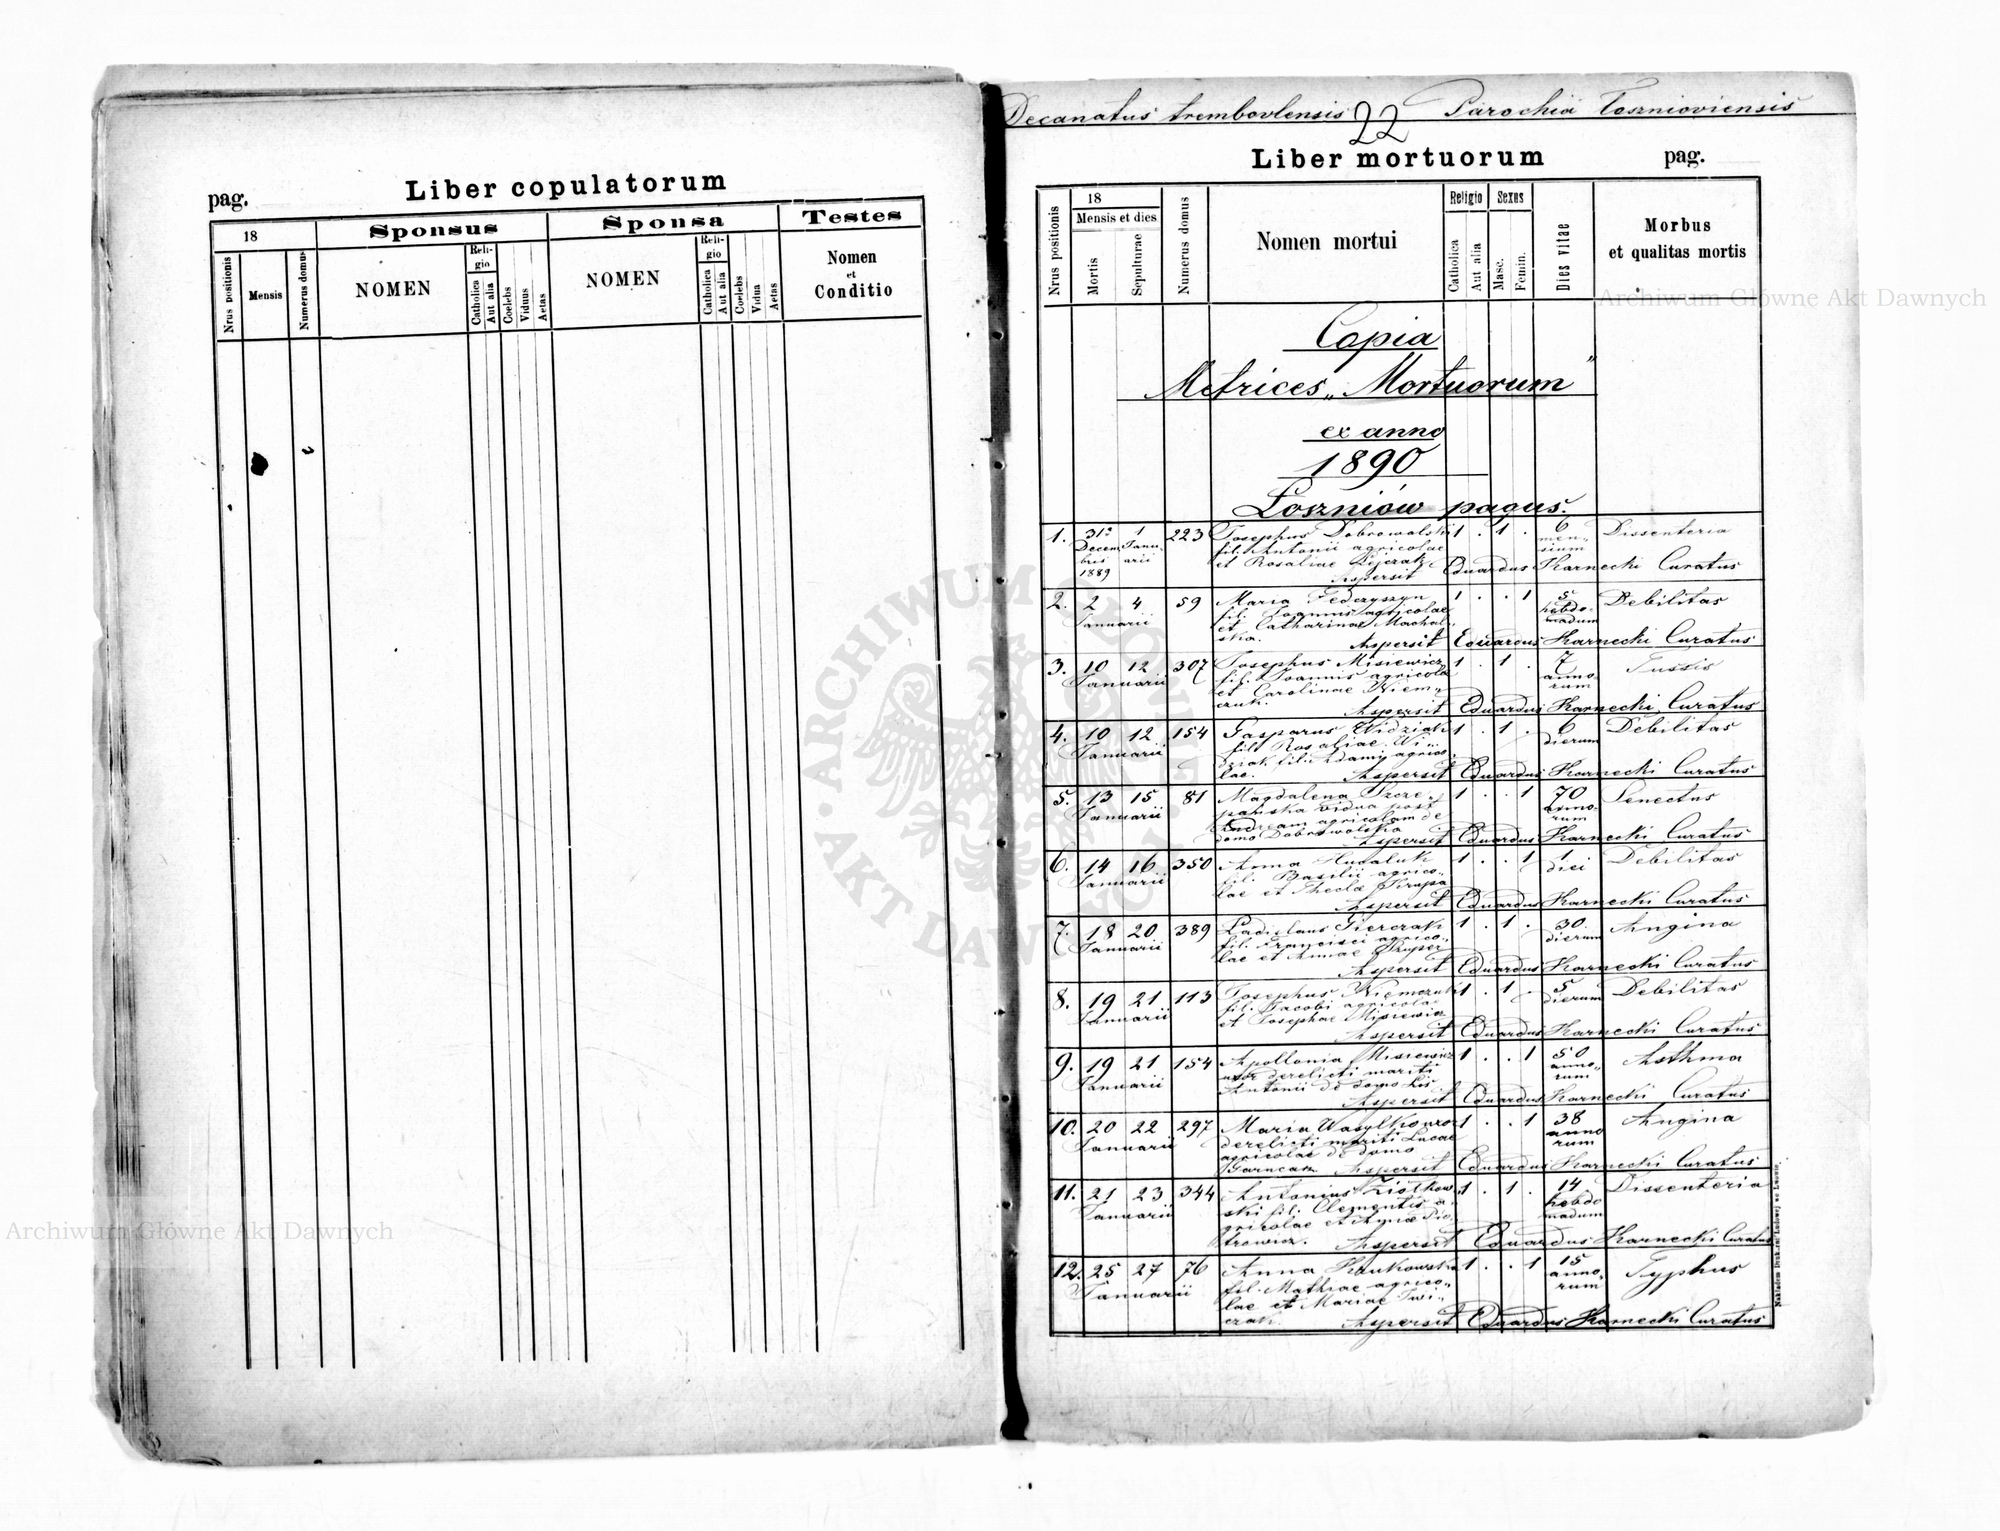 pag.
Liber copulatorum
18
Sponsus
Sponsa
Testes
Nrus positionis
Mensis
Numerus domus
NOMEN
Religio
Catholica
Aut alia
Coelebs
Viduus
Aetas
NOMEN
Religio
Catholica
Aut alia
Coelebs
Vidua
Aetas
Nomen
et
Conditio
Decanatus trembovlensis 22 Parochia Łoszniowiensis
Liber mortuorum pag.
Nrus positionis
18
Mensis et dies
Mortis
Sepulturae
Numerus domus
Nomen mortui
Religio
Catholica
Aut alia
Sexus
Masc.
Femin.
Dies vitae
Morbus
et qualitas mortis
Copia
Metrices „Mortuorum"
ex anno
1890
Łoszniów pagus.
1. 31a Decembris 1889 1 Januarii 223 Josephus Dobrowolski 1 . 1 . 6 mensium Dissenteria
fil. Antonii agricolae
et Rosaliae
Aspersit Eduardus Karnecki Curatus
2. 2 4 Januarii 59 Maria Fedczyszyn 1 . . 1 5 hebdomadum Debilitas
fil. Joannis agricolae
et Catharinae Machalska.
Aspersit Eduardus Karnecki Curatus
3. 10 12 Januarii 307 Josephus Misiewicz 1 . 1 . 7 annorum Tussis
fil. Joannis agricola
et Carolinae Niemczuk.
Aspersit Eduardus Karnecki Curatus
4. 10 12 Januarii 154 Gasparus Widziak 1 . 1 . 6 dierum Debilitas
fil. Rosaliae Widziak filii Adami agricolae.
Aspersit Eduardus Karnecki Curatus
5. 13 15 Januarii 81 Magdalena Szczepańska vidua post 1 . . 1 70 annorum Senectus
Andream agricolam de
domo Dobrowolska
Aspersit Eduardus Karnecki Curatus
6. 14 16 Januarii 350 Anna 1 . . 1 1 diei Debilitas
fil. Basilii agricolae et Theclae Krupa
Aspersit Eduardus Karnecki Curatus
7. 18 20 Januarii 389 Ladislaus 1 . 1 . 30 dierum Angina
fil. Francisci agricolae et Annae
Aspersit Eduardus Karnecki Curatus
8. 19 21 Januarii 113 Josephus Niemczuk 1 . 1 . 5 dierum Debilitas
fil. Jacobi agricola
et Josephae Misiewicz
Aspersit Eduardus Karnecki Curatus
9. 19 21 Januarii 154 Apollonia Misiewicz 1 . . 1 50 annorum Asthma
uxor derelicti mariti
Antonii de domo Lis
Aspersit Eduardus Karnecki Curatus
10. 20 22 Januarii 297 Maria 1 . . 1 38 annorum Angina
derelicti mariti Lucae
agricolae de domo
Aspersit Eduardus Karnecki Curatus
11. 21 23 Januarii 344 Antonius Ziółkowski fil. Clementis agricolae et Annae Piotrowicz. 1 . 1 . 14 hebdomadum Dissenteria
Aspersit Eduardus Karnecki Curatus
12. 25 27 Januarii 76 Anna 1 . . 1 15 annorum Typhus
fil. Mathiae agricolae et Mariae
Aspersit Eduardus Karnecki Curatus
Archiwum Główne Akt Dawnych
Archiwum Główne Akt Dawnych
ARCHIWUM GŁÓWNE · AKT DAWNYCH ·